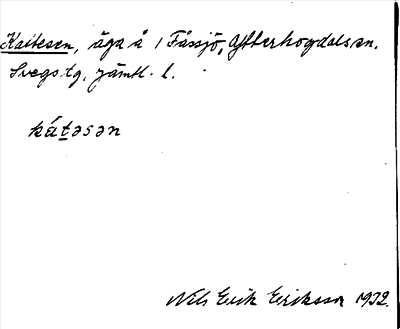 Kaitesen, äga å i Fåssjö, Ytterhogdals sn.
Svegs tg. Jämtl. l.
kátəsən
Nils Erik Eriksson 1932.